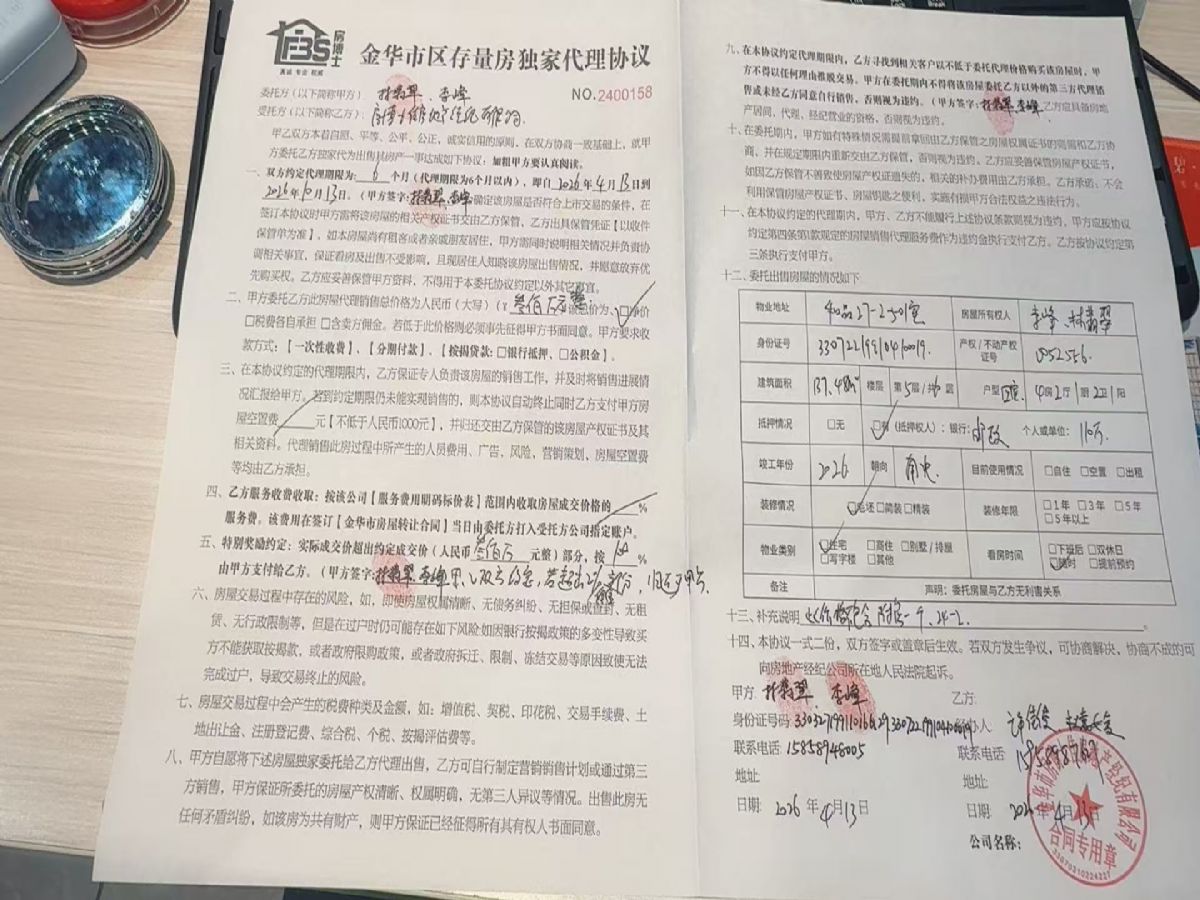 FBS
房博士
真诚 专业 权威
金华市区存量房独家代理协议
NO.2400158
委托方(以下简称甲方): 林翡翠、李峰
受托方(以下简称乙方):
甲乙双方本着自愿、平等、公平、公正,诚实信用的原则,在双方协商一致基础上,就甲
方委托乙方独家代为出售其房产一事达成如下协议:如粗甲方要认真阅读。
一、双方约定代理期限为: 6 个月(代理期限为6个月以内),即自2026年4月13日到
2026年9月13日。(甲方签字:林翡翠、李峰 确定该房屋是否符合上市交易的条件,在
签订本协议时甲方需将该房屋的相关产权证书交由乙方保管、乙方出具保管凭证【以收件
保管单为准】。如本房屋尚有租客或者亲戚朋友居住,甲方需同时说明相关情况并负责协
调相关事宜,保证看房及出售不受影响,且现居住人知晓该房屋出售情况,并愿意放弃优
先购买权。乙方应妥善保管甲方资料,不得用于本委托协议约定以外其它事宜。
二、甲方委托乙方此房屋代理销售总价格为人民币(大写)(¥ 叁佰万元整 该总价为、☑净价
□税费各自承担 □含卖方佣金。若低于此价格则必须事先征得甲方书面同意。甲方要求收
款方式:【一次性收费】、【分期付款】、【按揭贷款:□银行抵押、□公积金】。
三、在本协议约定的代理期限内,乙方保证专人负责该房屋的销售工作,并及时将销售进展情
况汇报给甲方。若到约定期限仍未能实现销售的,则本协议自动终止同时乙方支付甲方房
屋空置费 元【不低于人民币1000元】,并归还交由乙方保管的该房屋产权证书及其
相关资料。代理销售此房过程中所产生的人员费用、广告,风险,营销策划、房屋空置费
等均由乙方承担。
四、乙方服务收费收取:按该公司【服务费用明码标价表】范围内收取房屋成交价格的 %
服务费。该费用在签订【金华市房屋转让合同】当日由委托方打入受托方公司指定账户。
五、特别奖励约定:实际成交价超出约定成交价(人民币 叁佰万 元整)部分,按 100 %
由甲方支付给乙方。(甲方签字:林翡翠、李峰 甲、乙双方约定,若超出 部分,归还于甲方.
六、房屋交易过程中存在的风险,如,即使房屋权属清晰、无债务纠纷、无担保或查封、无租
赁、无行政限制等,但是在过户时仍可能存在如下风险:如因银行按揭政策的多变性导致买
方不能获取按揭款,或者政府限购政策,或者政府拆迁、限制、冻结交易等原因致使无法
完成过户,导致交易终止的风险。
七、房屋交易过程中会产生的税费种类及金额,如:增值税、契税、印花税、交易手续费、土
地出让金、注册登记费、综合税、个税、按揭评估费等。
八、甲方自愿将下述房屋独家委托给乙方代理出售,乙方可自行制定营销销售计划或通过第三
方销售,甲方保证所委托的房屋产权清晰、权属明确,无第三人异议等情况。出售此房无
任何矛盾纠纷,如该房为共有财产,则甲方保证已经征得所有其有权人书面同意。
九、在本协议约定代理期限内,乙方寻找到相关客户以不低于委托代理价格购买该房屋时,甲
方不得以任何理由推脱交易。甲方在委托期内不得将该房屋委托乙方以外的第三方代理销
售或未经乙方同意自行销售,否则视为违约。(甲方签字:林翡翠、李峰 乙方应具备房地
产居间、代理、经纪营业的资格,否则视为违约。
十、在委托期内,甲方如有特殊情况需提前拿回由乙方保管之房屋权属证书的则需和乙方协
商、并在规定期限内重新交由乙方保管,否则视为违约。乙方应妥善保管房屋产权证书,
如因乙方保管不善致使房屋产权证遗失的,相关的补办费用由乙方承担。乙方承诺:不会
利用保管房屋产权证书、房屋钥匙之便利,实施有损甲方合法权益之违法行为。
十一、在本协议约定的代理期内,甲方、乙方不能履行上述协议条款则视为违约,甲方应按协议
约定第四条第1款规定的房屋销售代理服务费作为违约金执行支付乙方。乙方按协议约定第
三条执行支付甲方。
十二、委托出售房屋的情况如下
物业地址 27-2-501室 房屋所有权人 李峰、林翡翠
身份证号 330722199104010019. 产权/不动产权证号 0052556.
建筑面积 137.48㎡ 楼层 第5层/共6层 户型 4房2厅1厨2卫1阳
抵押情况 □无 ☑有(抵押权人):银行:邮政 个人或单位:110万.
竣工年份 2026 朝向 南北 目前使用情况 □自住 □空置 □出租
装修情况 ☑毛坯 □简装 □精装 装修年限 □1年 □3年 □5年 □5年以上
物业类别 ☑住宅 □商住 □别墅/排屋 □写字楼 □其他 看房时间 □下班后 □双休日 ☑随时 □提前预约
备注 声明:委托房屋与乙方无利害关系
十三、补充说明 此价格包含
十四、本协议一式二份,双方签字或盖章后生效。若双方发生争议,可协商解决,协商不成的可
向房地产经纪公司所在地人民法院起诉。
甲方: 林翡翠、李峰 乙方:
身份证号码: 经办人:
联系电话: 15858948005 联系电话:
地址: 地址:
日期: 2026年4月13日 日期: 2026年4月13日
公司名称:
合同专用章